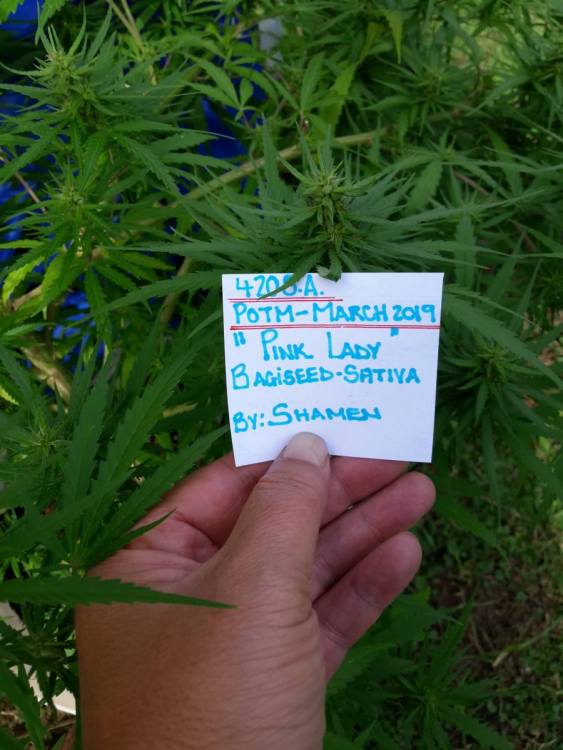 420S.A.
POTM-MARCH 2019
"PINK LADY"
BAGiSEED-SATIVA
BY: SHAMEN